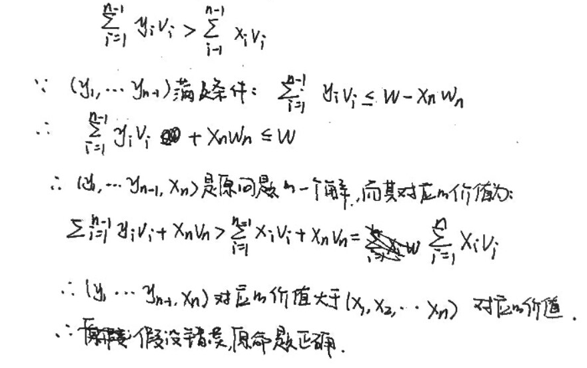 \sum_{i=1}^{n-1} y_i v_i > \sum_{i=1}^{n-1} x_i v_i
∵ (y_1, ··· y_{n-1}) 满足条件: \sum_{i=1}^{n-1} y_i v_i ≤ W - x_n w_n
∴ \sum_{i=1}^{n-1} y_i v_i + x_n w_n ≤ W
∴ (y_1, ··· y_{n-1}, x_n) 是原问题的一个解, 而其对应的价值为:
\sum_{i=1}^{n-1} y_i v_i + x_n v_n > \sum_{i=1}^{n-1} x_i v_i + x_n v_n = \sum_{i=1}^{n} x_i v_i
∴ (y_1 ··· y_{n-1}, x_n) 对应的价值大于 (x_1, x_2, ·· x_n) 对应的价值.
∴ 假设错误, 原命题正确.